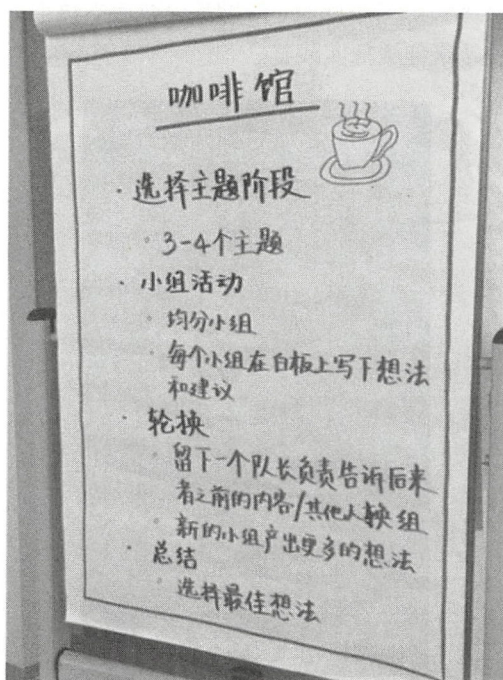 咖啡馆
· 选择主题阶段
· 3-4个主题
· 小组活动
· 均分小组
· 每个小组在白板上写下想法
和建议
· 轮换
· 留下一个队长负责告诉后来
者之前的内容/其他人换组
· 新的小组产出更多的想法
· 总结
· 选择最佳想法